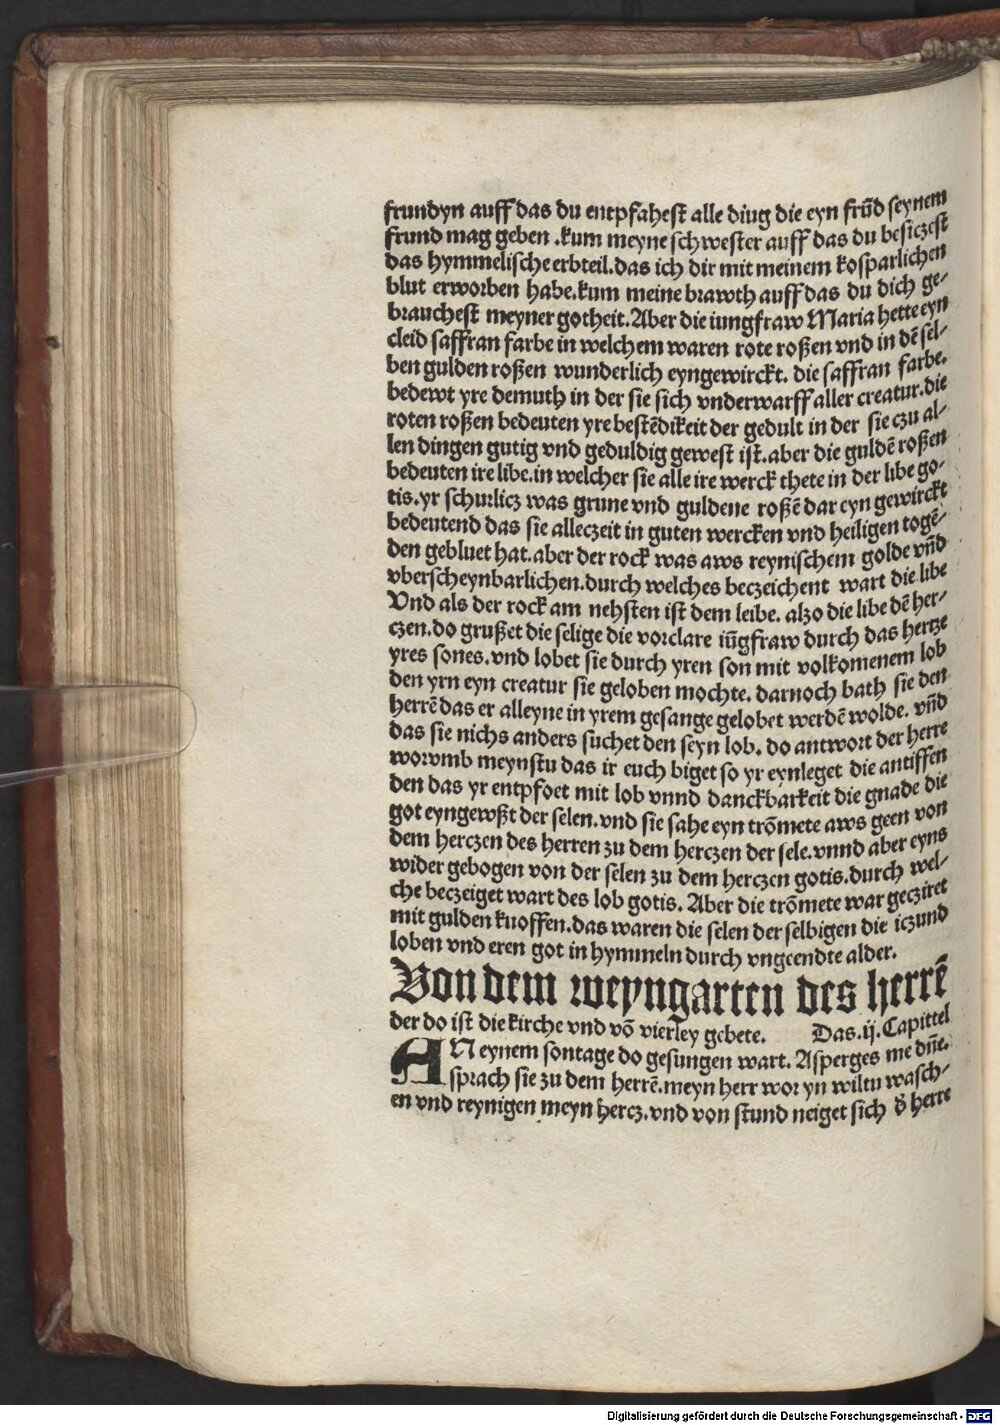 frundyn auff das du entpfahest alle diug die eyn frūd seynem
frund mag geben .kum meyne schwester auff das du besiczest
das hymmelische erbteil.das ich dir mit meinem kosparlichen
blut erworben habe.kum meine brawth auff das du dich ge-
brauchest meyner gotheit.Aber die iungfraw Maria hette eyn
cleid saffran farbe in welchem waren rote roßen vnd in dē sel-
ben gulden roßen wunderlich eyngewirckt. die saffran farbe.
bedewt yre demuth in der sie sich vnderwarff aller creatur.die
roten roßen bedeuten yre bestēdikeit der gedult in der sie czu al-
len dingen gutig vnd geduldig gewest ist.aber die guldē roßen
bedeuten ire libe.in welcher sie alle ire werck thete in der libe go-
tis.yr schurlicz was grune vnd guldene roßē dar eyn gewirckt
bedeutend das sie alleczeit in guten wercken vnd heiligen togē-
den gebluet hat.aber der rock was aws reynischem golde vn̄d
vberscheynbarlichen.durch welches beczeichent wart die libe
Vnd als der rock am nehsten ist dem leibe. alzo die libe dē her-
czen.do grußet die selige die vorclare iūgfraw durch das hertze
yres sones.vnd lobet sie durch yren son mit volkomenem lob
den yrn eyn creatur sie geloben mochte. darnoch bath sie den
herrē das er alleyne in yrem gesange gelobet werdē wolde. vn̄d
das sie nichs anders suchet den seyn lob. do antwort der herre
worvmb meynstu das ir euch biget so yr eynleget die antiffen
den das yr entpfoet mit lob vnnd danckbarkeit die gnade die
got eyngewßt der selen.vnd sie sahe eyn trōmete aws geen von
dem herczen des herren zu dem herczen der sele.vnnd aber eyns
wider gebogen von der selen zu dem herczen gotis.durch wel-
che beczeiget wart des lob gotis. Aber die trōmete war gecziret
mit gulden knoffen.das waren die selen der selbigen die iczund
loben vnd eren got in hymmeln durch vngeendte alder.
Von dem weyngarten des herrē
der do ist die kirche vnd vō vierley gebete. Das.ij.Capittel
AN eynem sontage do gesungen wart. Asperges me dn̄e.
sprach sie zu dem herrē.meyn herr wor yn wiltu wasch-
en vnd reynigen meyn hercz.vnd von stund neiget sich d̄ herre
Digitalisierung gefördert durch die Deutsche Forschungsgemeinschaft - DFG